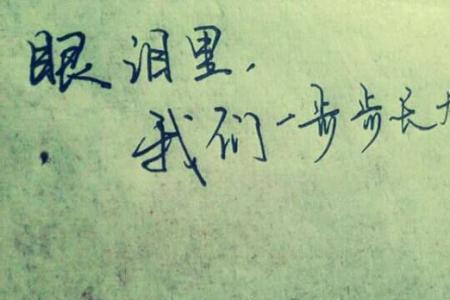 眼泪里，
我们一步步长大